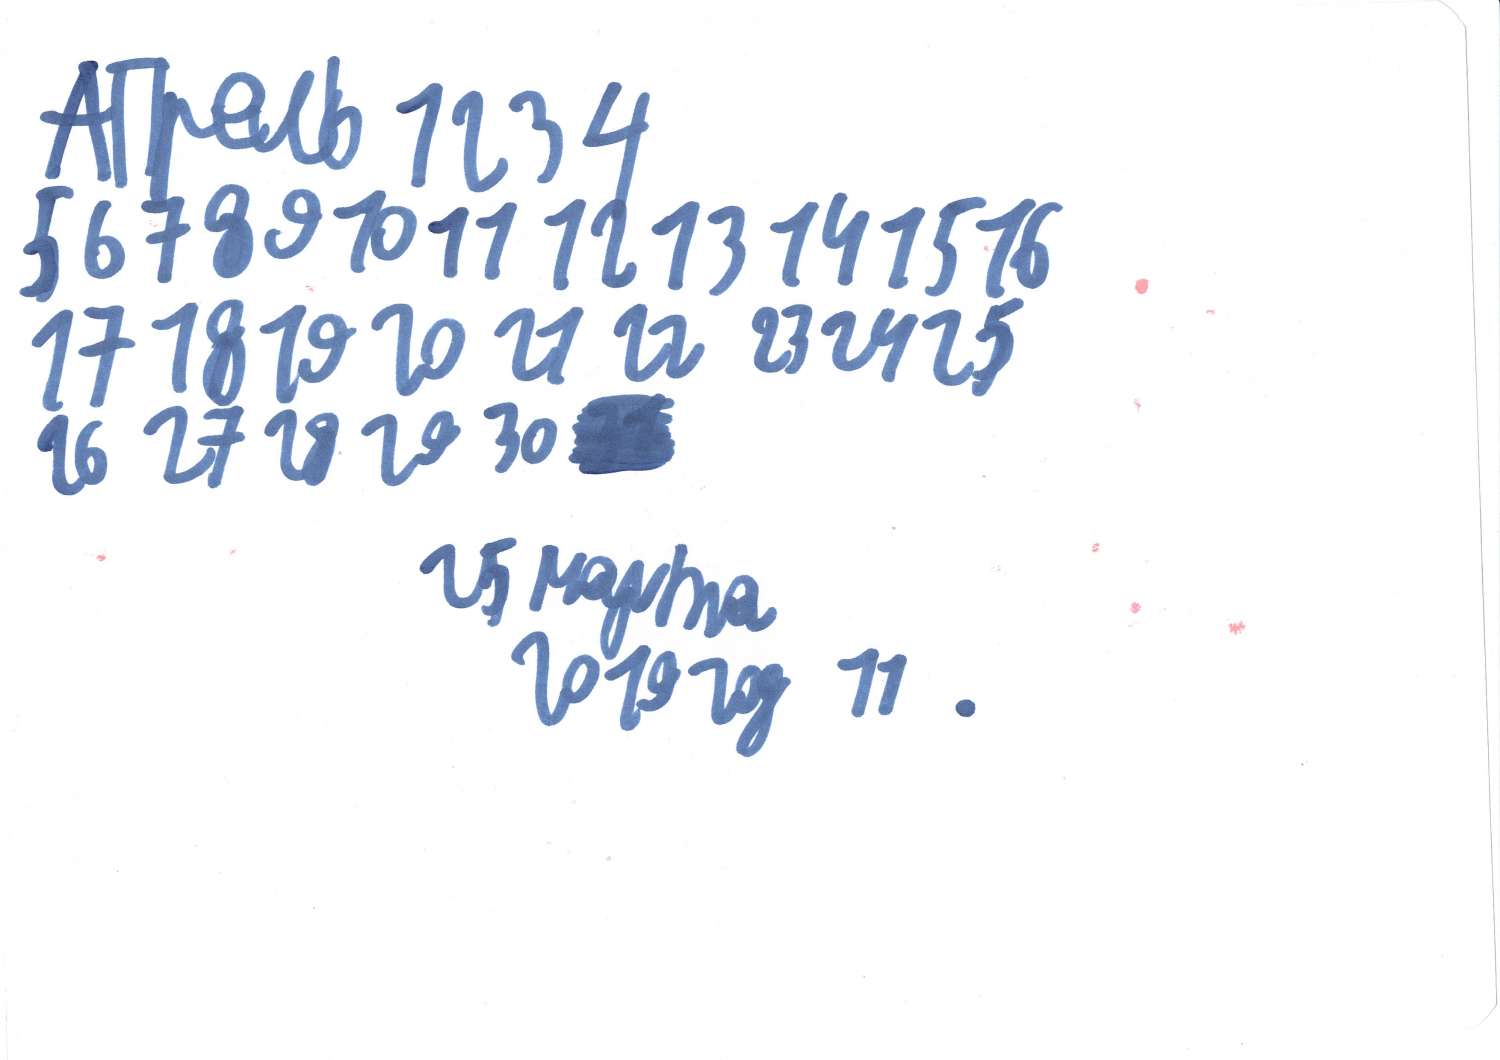 Апрель 1 2 3 4
5 6 7 8 9 10 11 12 13 14 15 16
17 18 19 20 21 22 23 24 25
26 27 28 29 30
25 марта
2019 год 11 .